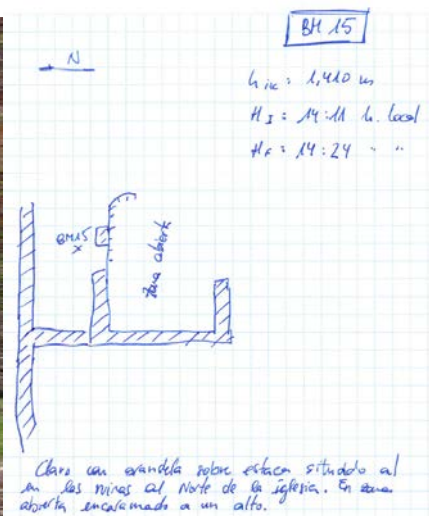 BM 15
N
h inc: 1,410 m
H I: 14:11 h. local
H F: 14:24 " "
BM15
x
Zona abierta
Clavo con arandela sobre estaca situado al
en las ruinas al Norte de la iglesia. En zona
abierta encaramado a un alto.